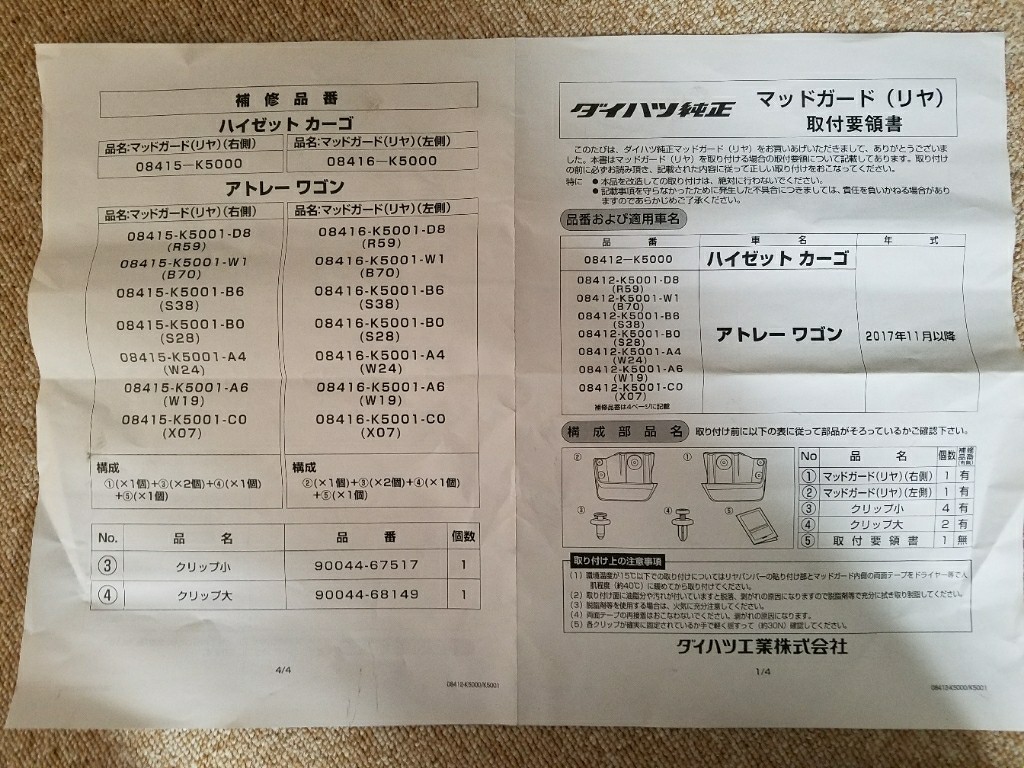 補修品番
ハイゼット カーゴ
品名:マッドガード(リヤ)(右側) 品名:マッドガード(リヤ)(左側)
08415-K5000 08416-K5000
アトレー ワゴン
品名:マッドガード(リヤ)(右側) 品名:マッドガード(リヤ)(左側)
08415-K5001-D8 08416-K5001-D8
(R59) (R59)
08415-K5001-W1 08416-K5001-W1
(B70) (B70)
08415-K5001-B6 08416-K5001-B6
(S38) (S38)
08415-K5001-B0 08416-K5001-B0
(S28) (S28)
08415-K5001-A4 08416-K5001-A4
(W24) (W24)
08415-K5001-A6 08416-K5001-A6
(W19) (W19)
08415-K5001-C0 08416-K5001-C0
(X07) (X07)
構成 構成
①(×1個)+③(×2個)+④(×1個) ②(×1個)+③(×2個)+④(×1個)
+⑤(×1個) +⑤(×1個)
No. 品名 品番 個数
③ クリップ小 90044-67517 1
④ クリップ大 90044-68149 1
4/4
08412-K5000/K5001
ダイハツ純正 マッドガード(リヤ)
取付要領書
このたびは、ダイハツ純正マッドガード(リヤ)をお買いあげいただきまして、ありがとうございま
した。本書はマッドガード(リヤ)を取り付ける場合の取付要領について記載してあります。取り付け
の前に必ずお読み頂き、記載された内容に従って正しい取り付けをおこなってください。
特に ●本品を改造しての取り付けは、絶対に行わないでください。
●記載事項を守らなかったために発生した不具合につきましては、責任を負いかねる場合があり
ますのであらかじめご了承ください。
品番および適用車名
品番 車名 年式
08412-K5000 ハイゼット カーゴ
08412-K5001-D8
(R59)
08412-K5001-W1
(B70)
08412-K5001-B6
(S38)
08412-K5001-B0 アトレー ワゴン 2017年11月以降
(S28)
08412-K5001-A4
(W24)
08412-K5001-A6
(W19)
08412-K5001-C0
(X07)
補修品番は4ページに記載
構成部品名 取り付け前に以下の表に従って部品がそろっているかご確認下さい。
② ① ③ ④ ⑤
No 品名 個数 補修品番(有無)
① マッドガード(リヤ)(右側) 1 有
② マッドガード(リヤ)(左側) 1 有
③ クリップ小 4 有
④ クリップ大 2 有
⑤ 取付要領書 1 無
取り付け上の注意事項
(1)環境温度が15℃以下での取り付けについてはリヤバンパーの貼り付け部とマッドガード内側の両面テープをドライヤー等で人
肌程度(約40℃)に暖めてから取り付けてください。
(2)取り付け面に油脂分や汚れが付いていますと脱落、剥がれの原因になりますので脱脂剤等で充分に拭き取り脱脂してください。
(3)脱脂剤等を使用する場合は、火気に充分注意してください。
(4)両面テープの再接着はおこなわないでください。剥がれの原因になります。
(5)各クリップが確実に固定されているか手で軽く揺すって(約30N)確認してください。
ダイハツ工業株式会社
1/4
08412-K5000/K5001